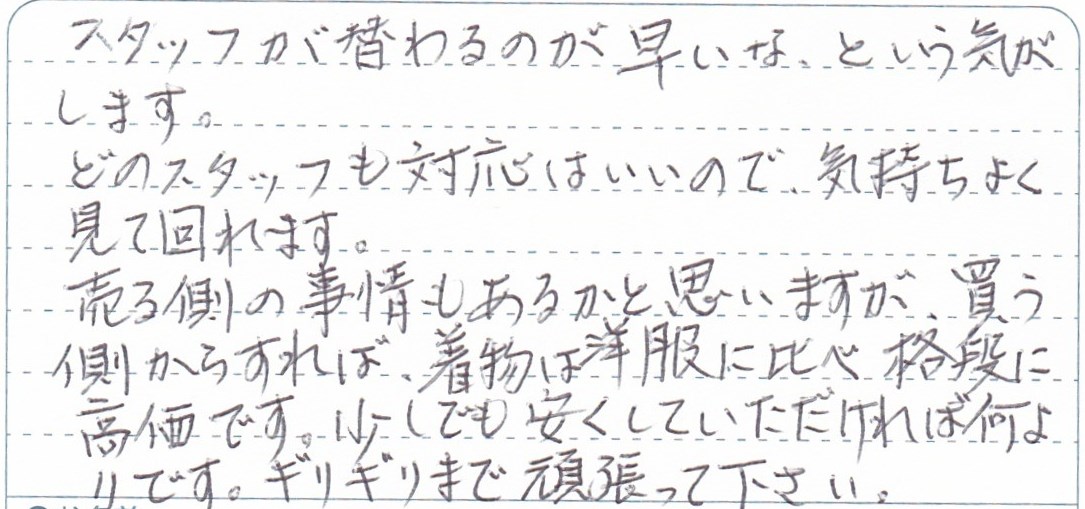 スタッフが替わるのが早いな、という気が
します。
どのスタッフも対応はいいので、気持ちよく
見て回れます。
売る側の事情もあるかと思いますが、買う
側からすれば、着物は洋服に比べ格段に
高価です。少しでも安くしていただければ何よ
りです。ギリギリまで頑張って下さい。